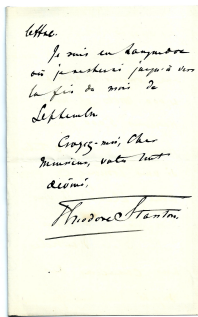 lettre.
Je suis en Languedoc
où je resterai jusqu'à vers
la fin du mois de
Septembre.
Croyez-moi, Cher
Monsieur, votre tout
dévoué.
Theodore Stanton.